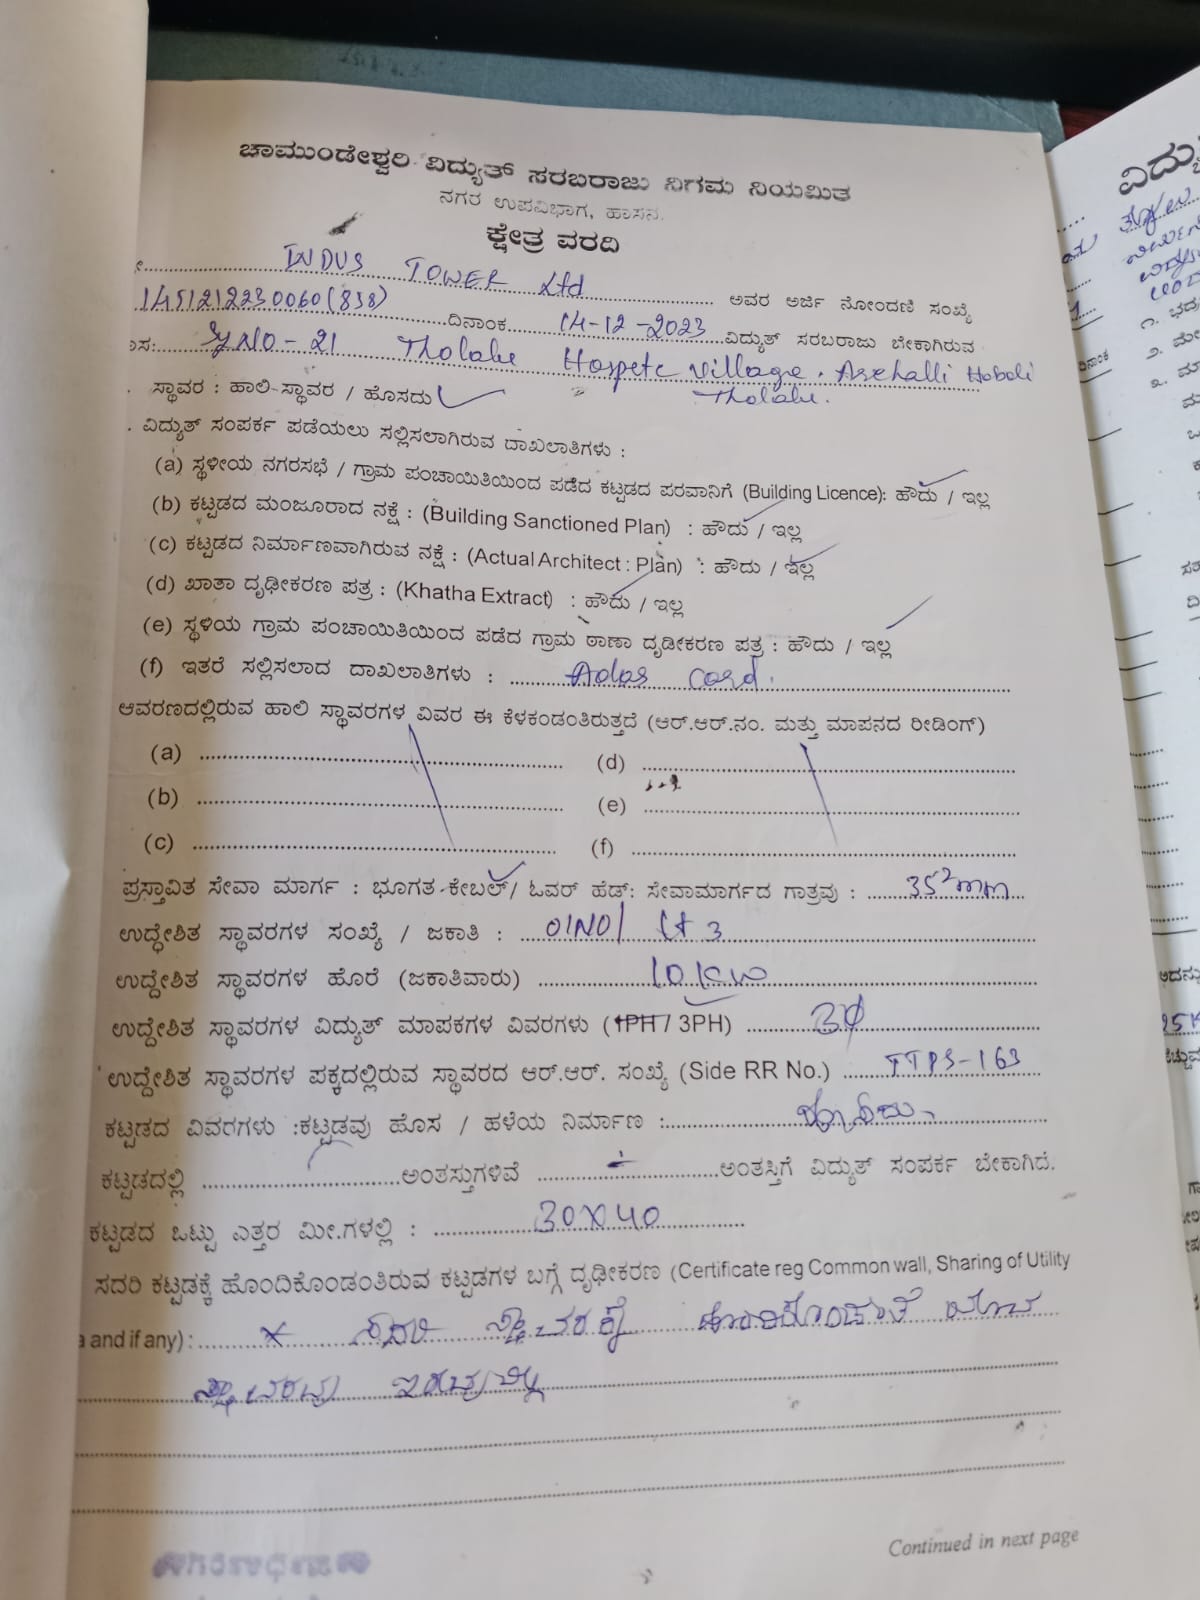 ಚಾಮುಂಡೇಶ್ವರಿ ವಿದ್ಯುತ್ ಸರಬರಾಜು ನಿಗಮ ನಿಯಮಿತ
ನಗರ ಉಪವಿಭಾಗ, ಹಾಸನ.
ಕ್ಷೇತ್ರ ವರದಿ
INDUS TOWER Ltd ಅವರ ಅರ್ಜಿ ನೋಂದಣಿ ಸಂಖ್ಯೆ
1451212230060(838) ದಿನಾಂಕ 14-12-2023 ವಿದ್ಯುತ್ ಸರಬರಾಜು ಬೇಕಾಗಿರುವ
NO-21 Tholalu Hospete Village. Arehalli Hoboli
Tholalu.
ಸ್ಥಾವರ : ಹಾಲಿ-ಸ್ಥಾವರ / ಹೊಸದು
. ವಿದ್ಯುತ್ ಸಂಪರ್ಕ ಪಡೆಯಲು ಸಲ್ಲಿಸಲಾಗಿರುವ ದಾಖಲಾತಿಗಳು :
(a) ಸ್ಥಳೀಯ ನಗರಸಭೆ / ಗ್ರಾಮ ಪಂಚಾಯಿತಿಯಿಂದ ಪಡೆದ ಕಟ್ಟಡದ ಪರವಾನಿಗೆ (Building Licence): ಹೌದು / ಇಲ್ಲ
(b) ಕಟ್ಟಡದ ಮಂಜೂರಾದ ನಕ್ಷೆ : (Building Sanctioned Plan) : ಹೌದು / ಇಲ್ಲ
(c) ಕಟ್ಟಡದ ನಿರ್ಮಾಣವಾಗಿರುವ ನಕ್ಷೆ : (Actual Architect : Plan) : ಹೌದು / ಇಲ್ಲ
(d) ಖಾತಾ ದೃಢೀಕರಣ ಪತ್ರ : (Khatha Extract) : ಹೌದು / ಇಲ್ಲ
(e) ಸ್ಥಳಿಯ ಗ್ರಾಮ ಪಂಚಾಯಿತಿಯಿಂದ ಪಡೆದ ಗ್ರಾಮ ಠಾಣಾ ದೃಡೀಕರಣ ಪತ್ರ : ಹೌದು / ಇಲ್ಲ
(f) ಇತರೆ ಸಲ್ಲಿಸಲಾದ ದಾಖಲಾತಿಗಳು : Adas Card.
ಆವರಣದಲ್ಲಿರುವ ಹಾಲಿ ಸ್ಥಾವರಗಳ ವಿವರ ಈ ಕೆಳಕಂಡಂತಿರುತ್ತದೆ (ಆರ್.ಆರ್.ನಂ. ಮತ್ತು ಮಾಪನದ ರೀಡಿಂಗ್)
(a) (d)
(b) (e)
(c) (f)
ಪ್ರಸ್ತಾವಿತ ಸೇವಾ ಮಾರ್ಗ : ಭೂಗತ-ಕೇಬಲ್/ ಓವರ್ ಹೆಡ್: ಸೇವಾಮಾರ್ಗದ ಗಾತ್ರವು : 35²mm
ಉದ್ದೇಶಿತ ಸ್ಥಾವರಗಳ ಸಂಖ್ಯೆ / ಜಕಾತಿ : 01NO/ Lt 3
ಉದ್ದೇಶಿತ ಸ್ಥಾವರಗಳ ಹೊರೆ (ಜಕಾತಿವಾರು) 10 KW
ಉದ್ದೇಶಿತ ಸ್ಥಾವರಗಳ ವಿದ್ಯುತ್ ಮಾಪಕಗಳ ವಿವರಗಳು (1PH / 3PH) 3Φ
ಉದ್ದೇಶಿತ ಸ್ಥಾವರಗಳ ಪಕ್ಕದಲ್ಲಿರುವ ಸ್ಥಾವರದ ಆರ್.ಆರ್. ಸಂಖ್ಯೆ (Side RR No.) TTPS-163
ಕಟ್ಟಡದ ವಿವರಗಳು :ಕಟ್ಟಡವು ಹೊಸ / ಹಳೆಯ ನಿರ್ಮಾಣ :
ಕಟ್ಟಡದಲ್ಲಿ ಅಂತಸ್ತುಗಳಿವೆ ಅಂತಸ್ತಿಗೆ ವಿದ್ಯುತ್ ಸಂಪರ್ಕ ಬೇಕಾಗಿದೆ.
ಕಟ್ಟಡದ ಒಟ್ಟು ಎತ್ತರ ಮೀ.ಗಳಲ್ಲಿ : 30X40
ಸದರಿ ಕಟ್ಟಡಕ್ಕೆ ಹೊಂದಿಕೊಂಡಂತಿರುವ ಕಟ್ಟಡಗಳ ಬಗ್ಗೆ ದೃಢೀಕರಣ (Certificate reg Common wall, Sharing of Utility
and if any) : x ಸದರಿ ಸ್ಥಾವರಕ್ಕೆ ಹೊಂದಿಕೊಂಡಂತೆ ಯಾವ
ಸ್ಥಾವರವು ಇರುವುದಿಲ್ಲ
Continued in next page